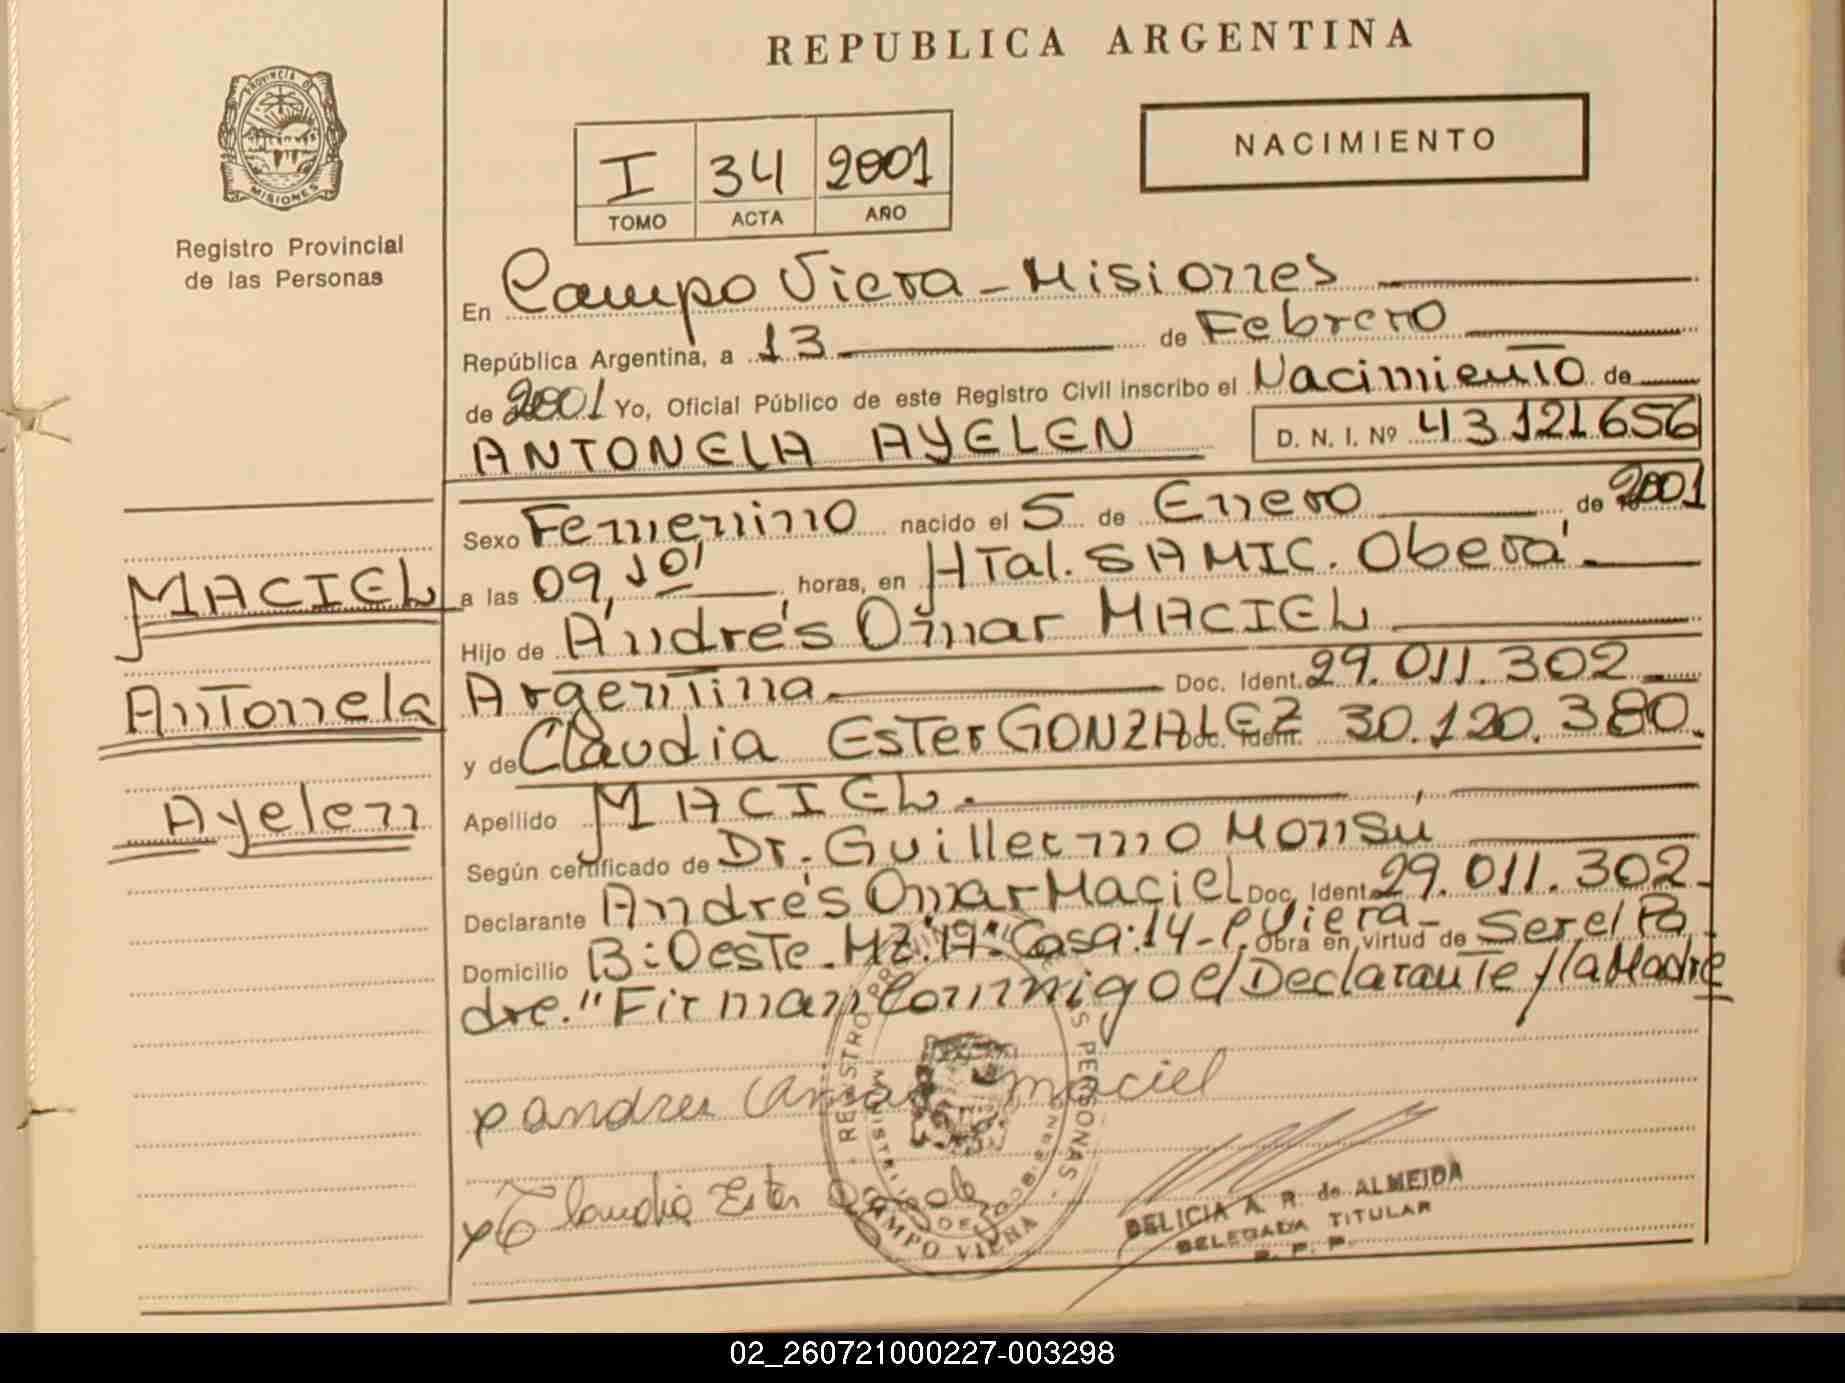 REPUBLICA ARGENTINA
PROVINCIA D MISIONES
Registro Provincial
de las Personas
I 34 2001
TOMO ACTA AÑO
NACIMIENTO
En Campo Viera - Misiones
República Argentina, a 13 de Febrero
de 2001 Yo, Oficial Público de este Registro Civil inscribo el Nacimiento de
ANTONELA AYELEN D. N. I. Nº 43121656
Sexo Femenino nacido el 5 de Enero de 2001
a las 09,10' horas, en Htal. SAMIC. Oberá
Hijo de Andrés Omar MACIEL
Argentina Doc. Ident. 29.011.302
y de Claudia Ester GONZALEZ Doc. Ident. 30.120.380.
Apellido MACIEL.
Según certificado de Dr. Guillermo Monsú
Declarante Andrés Omar Maciel Doc. Ident. 29.011.302-
Domicilio B: Oeste. MZ. "A" Casa: 14 - C. Viera - Obra en virtud de Ser el Pa
dre." Firman Conmigo el Declarante y la Madre
MACIEL
Antonela
Ayelen
maciel
Claudia Ester
REGISTRO PROVINCIAL DE LAS PERSONAS
CAMPO VIERA
DELICIA A. R. de ALMEIDA
DELEGADA TITULAR
R. P. P.
02_260721000227-003298